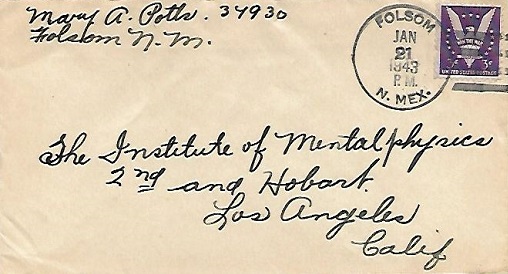 Mary A. Potts. 34930
Folsom N. M.
FOLSOM
JAN
21
1943
P.M.
N. MEX.
WIN THE WAR
3¢ 3¢
UNITED STATES POSTAGE
The Institute of Mentalphysics
2nd and Hobart.
Los Angeles
Calif